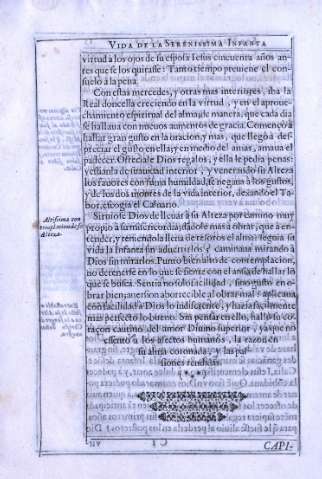 VIDA DE LA SERENISSIMA INFANTA
virtud a los ojos de su esposa Iesus cincuenta años an-
tes que se los quitasse: Tanto tiempo preuiene el con-
suelo à la pena.
Con estas mercedes, y otras mas interiores, iba la
Real doncella creciendo en la virtud, y en el aproue-
chamiento espiritual del alma, de manera, que cada dia
se hallaua con nueuos aumentos de gracia. Començò à
hallar gran gusto en la oracion, y mas, que llegò à des-
preciar el gusto en ella; y en medio del amar, amaua el
padecer. Ofreciale Dios regalos, y ella le pedia penas:
y estando de su act interior, y venerando su Alteza
los fauores con suma humildad, se negaua à los gustos,
y de los dos montes de la vida interior, dexando el Ta-
bor, escogia el Caluario.
Siruiose Dios de lleuar à su Alteza por camino muy
propio à su misericordia, dandole mas à obrar, que à en-
tender, y teniendo la llena de tesoros el alma seguia la
vida la Infanta sin aduertirlos; y caminaua mirando à
Dios sin mirarlos. Punto bien alto de contemplacion,
no detenerse en lo que se siente con el ansia de hallar lo
que se busca. Sentia no sola facilidad, sino gusto en o-
brar bien, auersion aborrecible al obrar mal: aplicaua
con facilidad à Dios lo indiferente, y hazia facilmente
mas perfecto lo bueno. Sin pensar en ello, hallò su co-
raçon cautiuo del amor Diuino superior, ya que no
essento à los afectos humanos, la razon en
su alma coronada, y las pas-
siones rendidas.
Altissima con-
templacion de su
Alteza.
CAPI-